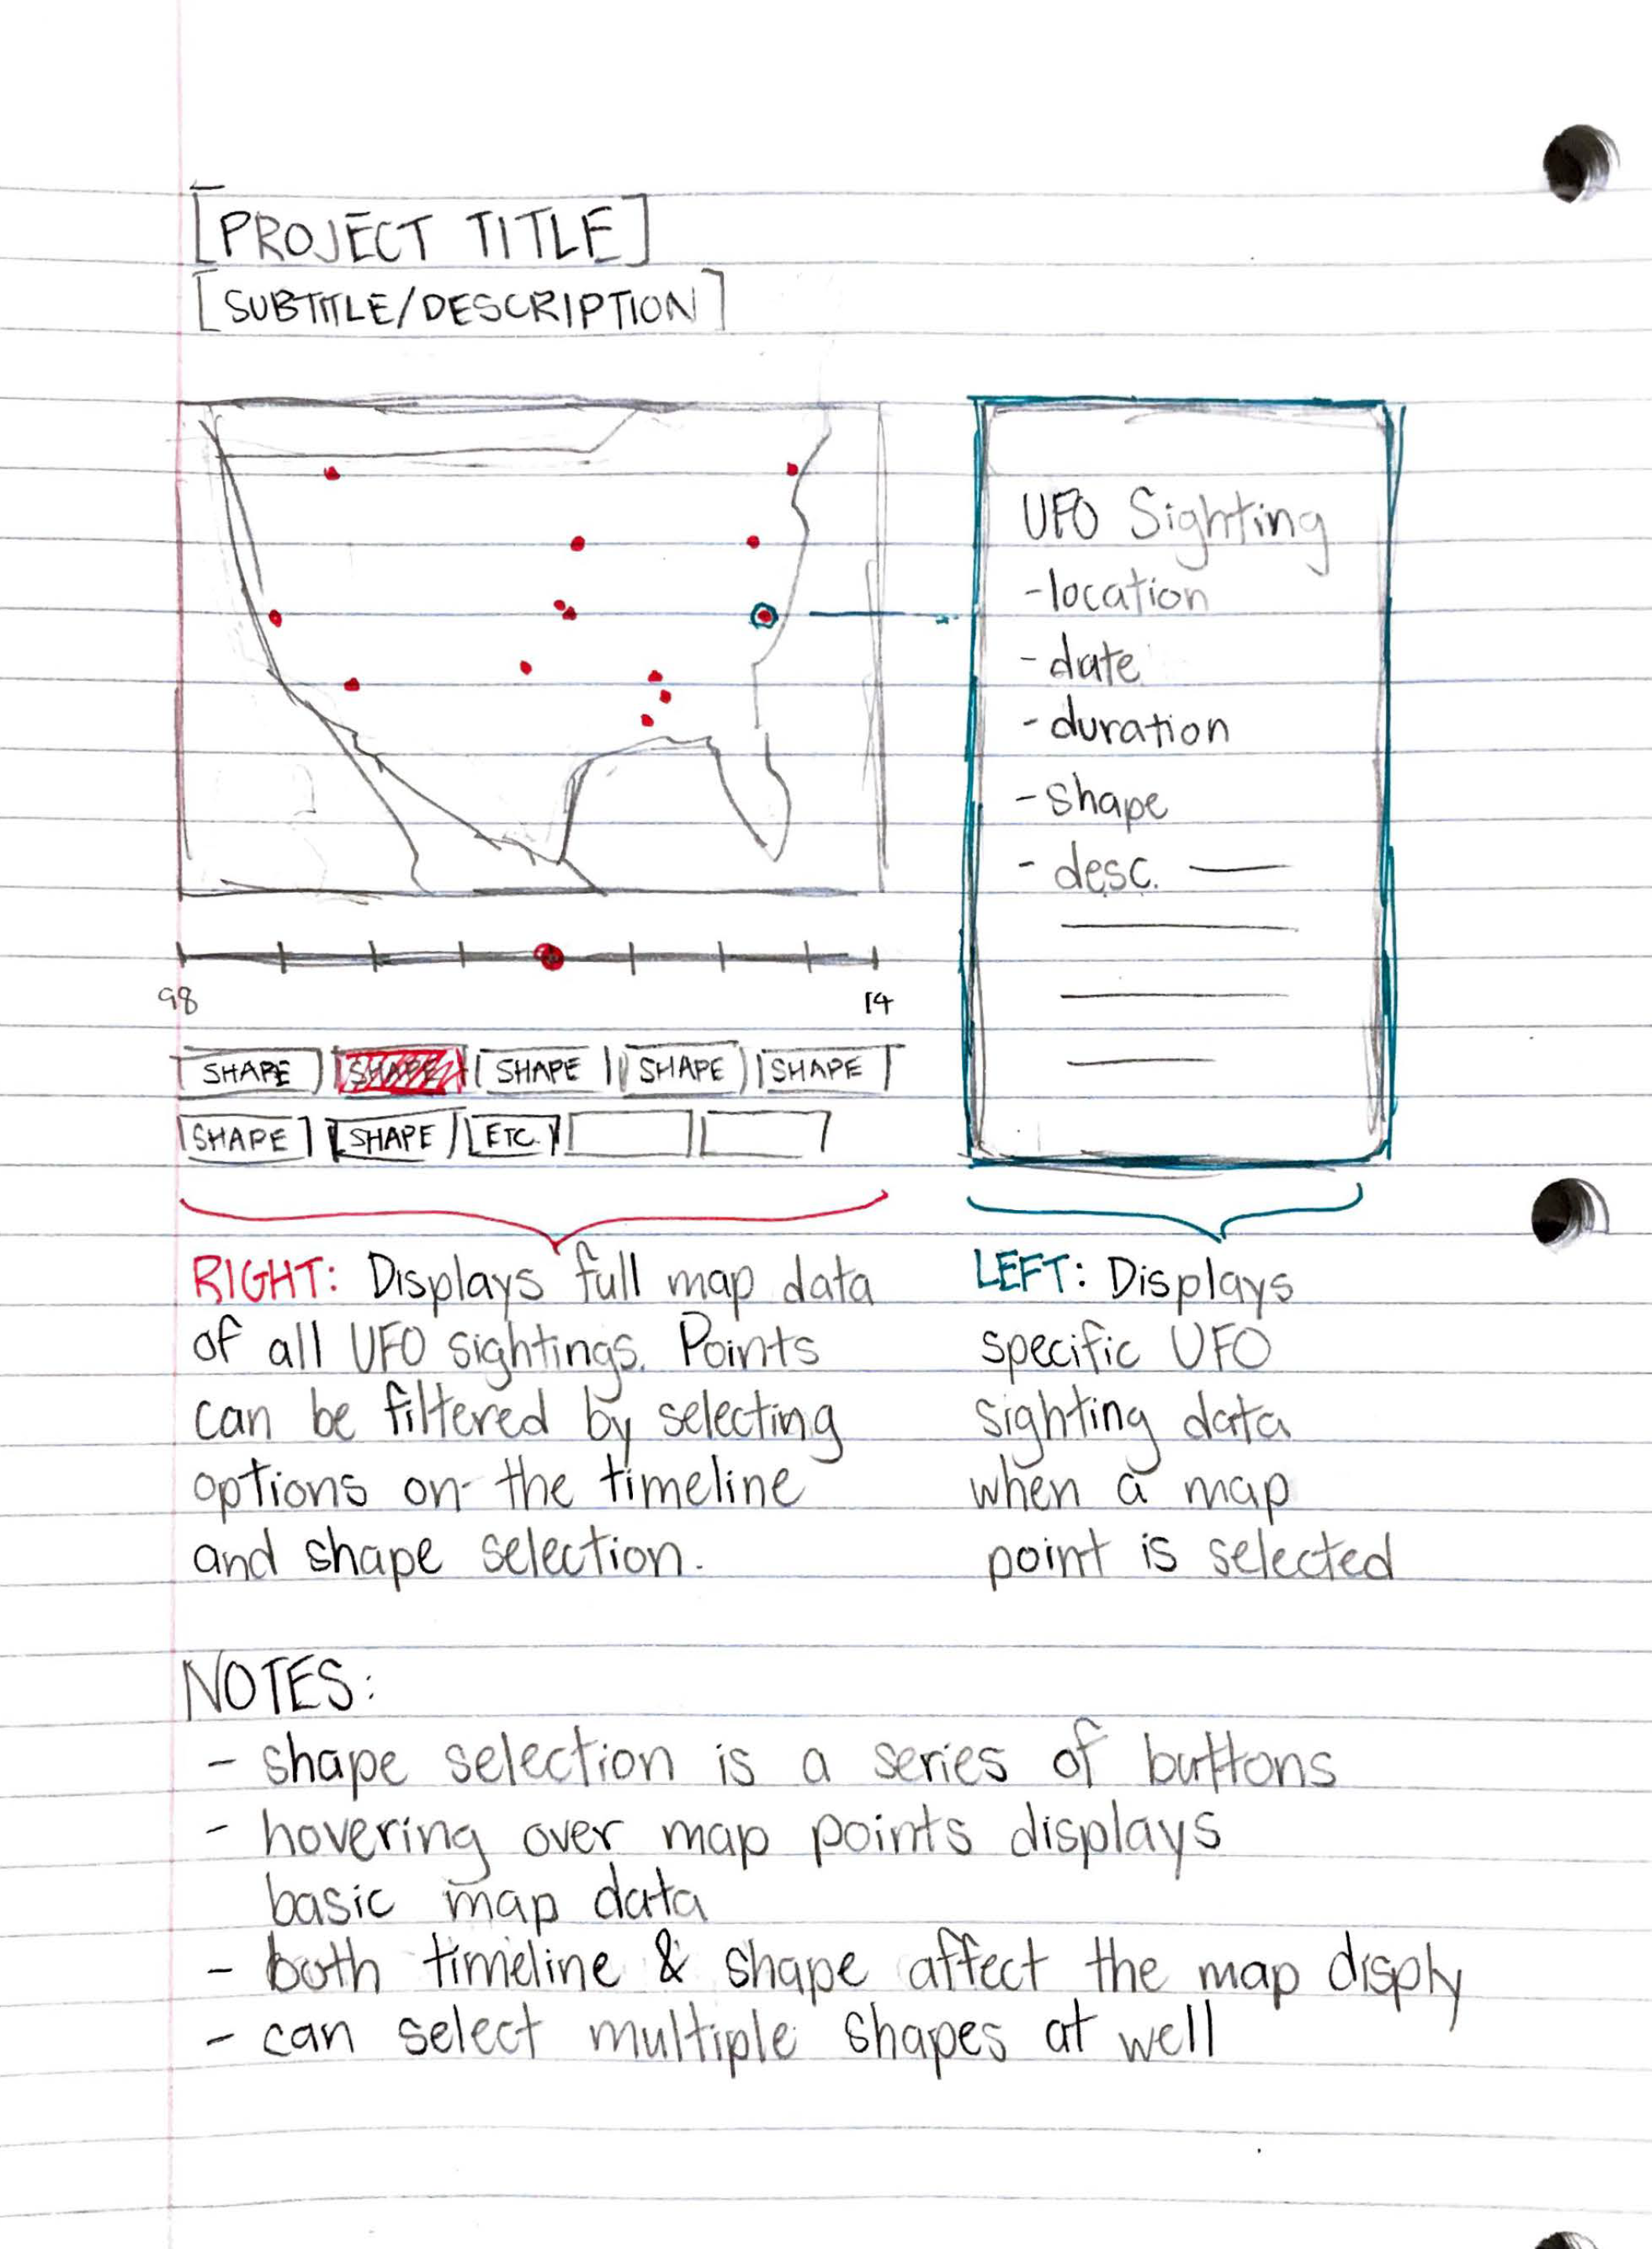 [PROJECT TITLE]
[SUBTITLE/DESCRIPTION]
UFO Sighting
-location
- date
- duration
- shape
- desc.
98
14
SHAPE SHAPE SHAPE SHAPE SHAPE
SHAPE SHAPE ETC.
RIGHT: Displays full map data
of all UFO sightings. Points
can be filtered by selecting
options on the timeline
and shape selection.
LEFT: Displays
specific UFO
sighting data
when a map
point is selected
NOTES:
- shape selection is a series of buttons
- hovering over map points displays
basic map data
- both timeline & shape affect the map disply
- can select multiple shapes at well